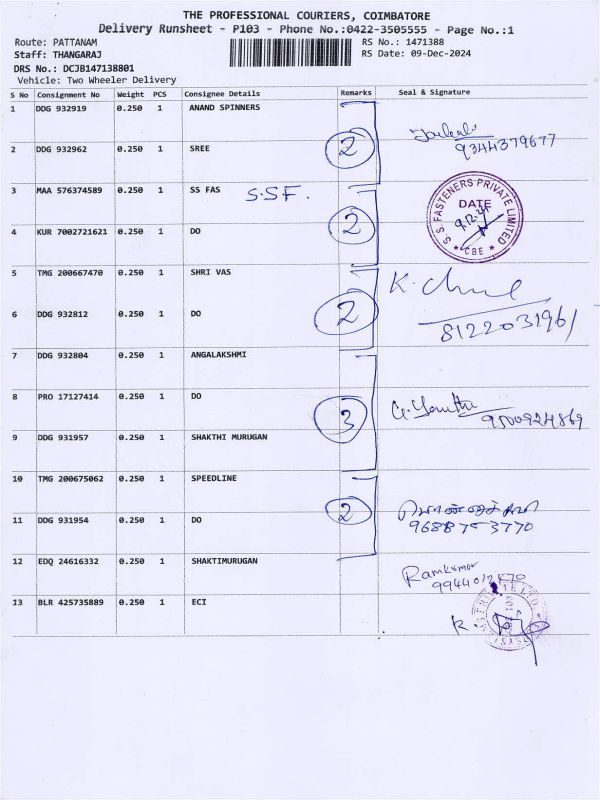 THE PROFESSIONAL COURIERS, COIMBATORE
Delivery Runsheet - P103 - Phone No.:0422-3505555 - Page No.:1
Route: PATTANAM
RS No.: 1471388
Staff: THANGARAJ
RS Date: 09-Dec-2024
DRS No.: DCJB147138801
Vehicle: Two Wheeler Delivery
S No Consignment No Weight PCS Consignee Details Remarks Seal & Signature
1 DDG 932919 0.250 1 ANAND SPINNERS
2 DDG 932962 0.250 1 SREE 2 9344379677
3 MAA 576374589 0.250 1 SS FAS S.S.F. S.S. FASTENERS PRIVATE LIMITED DATE 9.12.24 CBE
4 KUR 7002721621 0.250 1 DO 2
5 TMG 200667470 0.250 1 SHRI VAS
6 DDG 932812 0.250 1 DO 2 8122031961
7 DDG 932804 0.250 1 ANGALAKSHMI
8 PRO 17127414 0.250 1 DO 3 9500924869
9 DDG 931957 0.250 1 SHAKTHI MURUGAN
10 TMG 200675062 0.250 1 SPEEDLINE
11 DDG 931954 0.250 1 DO 2
12 EDQ 24616332 0.250 1 SHAKTIMURUGAN Ramkumar
13 BLR 425735889 0.250 1 ECI